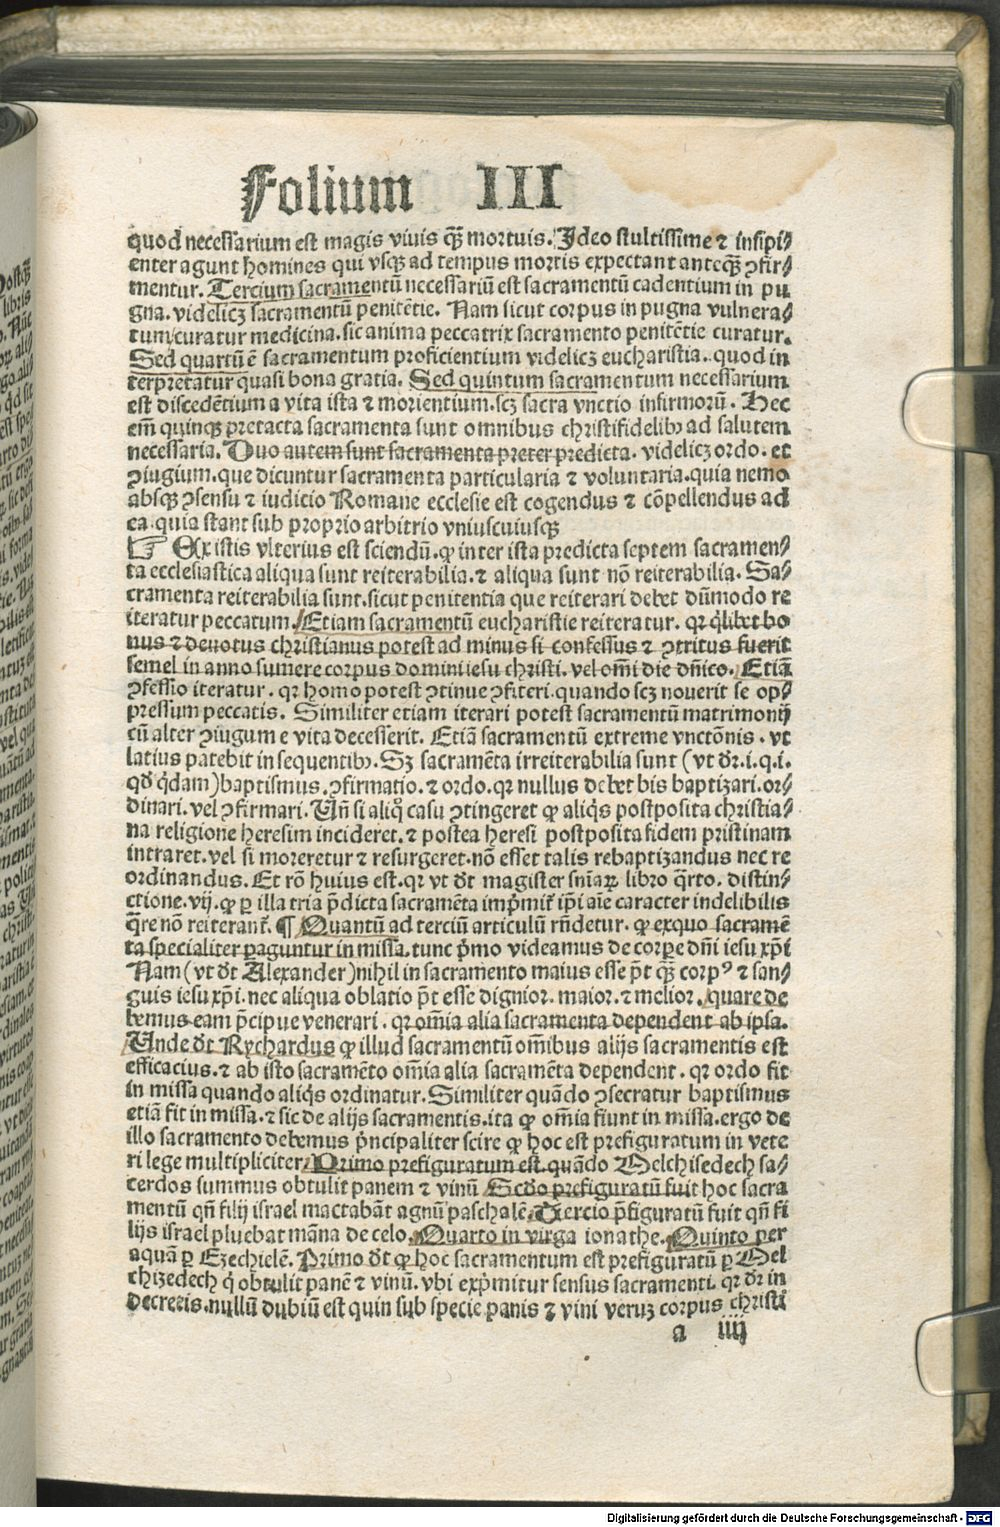 Folium III
quod necessarium est magis viuis qꝫ mortuis. Ideo stultissime ⁊ insipi⸗
enter agunt homines qui vsqꝫ ad tempus mortis expectant anteqꝫ ꝯfir⸗
mentur. Tercium sacramentū necessariū est sacramentū cadentium in pu
gna. videlicꝫ sacramentū penitētie. Nam sicut corpus in pugna vulnera⸗
tum/curatur medicina. sic anima peccatrix sacramento penitētie curatur.
Sed quartū ē sacramentum proficientium videlicꝫ eucharistia. quod in
terpretatur quasi bona gratia. Sed quintum sacramentum necessarium
est discedētium a vita ista ⁊ morientium. scꝫ sacra vnctio infirmorū. Hec
em̄ quinqꝫ pretacta sacramenta sunt omnibus christifidelibꝫ ad salutem
necessaria. Duo autem sunt sacramenta preter predicta. videlicꝫ ordo. et
ꝯiugium. que dicuntur sacramenta particularia ⁊ voluntaria. quia nemo
absqꝫ ꝯsensu ⁊ iudicio Romane ecclesie est cogendus ⁊ cōpellendus ad
ea. quia stant sub proprio arbitrio vniuscuiusqꝫ
☞ Ex istis vlterius est sciendū. ꝙ inter ista predicta septem sacramen⸗
ta ecclesiastica aliqua sunt reiterabilia. ⁊ aliqua sunt nō reiterabilia. Sa⸗
cramenta reiterabilia sunt. sicut penitentia que reiterari debet dūmodo re
iteratur peccatum. Etiam sacramentū eucharistie reiteratur. qr qͥlibet bo
nus ⁊ deuotus christianus potest ad minus si confessus ⁊ ꝯtritus fuerit
semel in anno sumere corpus domini iesu christi. vel om̄i die dn̄ico. Etiā
ꝯfessio iteratur. qr homo potest ꝯtinue ꝯfiteri. quando scꝫ nouerit se op⸗
pressum peccatis. Similiter etiam iterari potest sacramentū matrimonij
cū alter ꝯiugum e vita decesserit. Etiā sacramentū extreme vnctōnis. vt
latius patebit in sequentibꝫ. Sꝫ sacramēta irreiterabilia sunt (vt dr̄. i. q. i.
qd̄ qͥdam) baptismus. ꝯfirmatio. ⁊ ordo. qr nullus debet bis baptizari. or⸗
dinari. vel ꝯfirmari. Vn̄ si aliqͦ casu ꝯtingeret ꝙ aliqͥs postposita christia⸗
na religione heresim incideret. ⁊ postea heresi postposita fidem pristinam
intraret. vel si moreretur ⁊ resurgeret. nō esset talis rebaptizandus nec re
ordinandus. Et rō huius est. qr vt dt̄ magister sn̄iaꝝ libro qͣrto. distin⸗
ctione. vij. ꝙ ꝑ illa tria p̄dicta sacramēta imp̄mit̄ ip̄i aīe caracter indelibilis
qͣre nō reiterant̄. ¶ Quantū ad terciū articulū rn̄detur. ꝙ exquo sacramē
ta specialiter ꝑaguntur in missa. tunc pͥmo videamus de corꝑe dn̄i iesu xp̄i
Nam (vt dt̄ Alexander) nihil in sacramento maius esse pt̄ qꝫ corpꝰ ⁊ san⸗
guis iesu xp̄i. nec aliqua oblatio pt̄ esse dignior. maior. ⁊ melior. quare de
bemus eam p̄cipue venerari. qr om̄ia alia sacramenta dependent ab ipsa.
Unde dt̄ Rychardus ꝙ illud sacramentū om̄ibus alijs sacramentis est
efficacius. ⁊ ab isto sacramēto om̄ia alia sacramēta dependent. qr ordo fit
in missa quando aliqͥs ordinatur. Similiter quādo ꝯsecratur baptismus
etiā fit in missa. ⁊ sic de alijs sacramentis. ita ꝙ om̄ia fiunt in missa. ergo de
illo sacramento debemus pͥncipaliter scire ꝙ hoc est prefiguratum in vete
ri lege multipliciter. Primo prefiguratum est. quādo Melchisedech sa⸗
cerdos summus obtulit panem ⁊ vinū. Scd̄o prefiguratū fuit hoc sacra
mentū qn̄ filij israel mactabāt agnū paschalē. Tercio p̄figuratū fuit qn̄ fi
lijs israel pluebat māna de celo. Quarto in virga ionathe. Quinto per
aquam ꝑ Ezechielē. Primo dt̄ ꝙ hoc sacramentum est prefiguratū ꝑ Mel
chizedech qͥ obtulit panē ⁊ vinū. vbi expͥmitur sensus sacramenti. qr dr̄ in
decretis. nullū dubiū est quin sub specie panis ⁊ vini veruꝫ corpus christi
a iiij
Digitalisierung gefördert durch die Deutsche Forschungsgemeinschaft - DFG